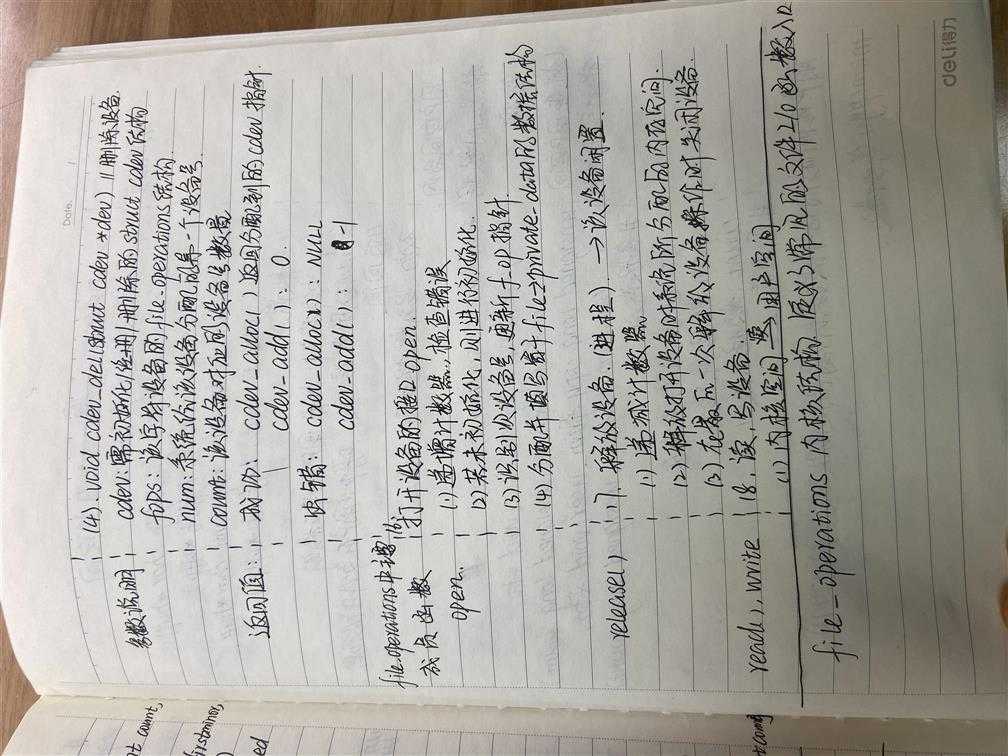 Date.
(4). void cdev_del(struct cdev *dev) // 删除设备.
参数说明 cdev: 需初始化/注册/删除的struct cdev结构
fops: 该字符设备的file_operations结构.
num: 系统给该设备分配的第一个设备号.
count: 该设备对应的设备号数量
返回值: 成功: cdev_alloc( ) 返回分配到的cdev指针.
cdev_add( ): 0.
出错: cdev_alloc( ): NULL
cdev_add( ): -1
file_operations中 16. 打开设备的接口 open.
成员函数 (1) 递增计数器, 检查错误
open. (2) 若未初始化, 则进行初始化.
(3) 识别次设备号, 更新f_op指针
(4) 分配并填写置于file->private_data的数据结构
release() 17. 释放设备. (进程) → 该设备闲置.
(1) 递减计数器
(2) 释放打开设备时系统所分配的内存空间.
(3) 在最后一次释放设备操作时关闭设备.
read、write 18. 读、写设备.
(1) 内核空间 → 用户空间
file_operations 内核结构, 定义了常见的文件I/O函数入口
deli得力
nt count,
firstminor,
ed
t count